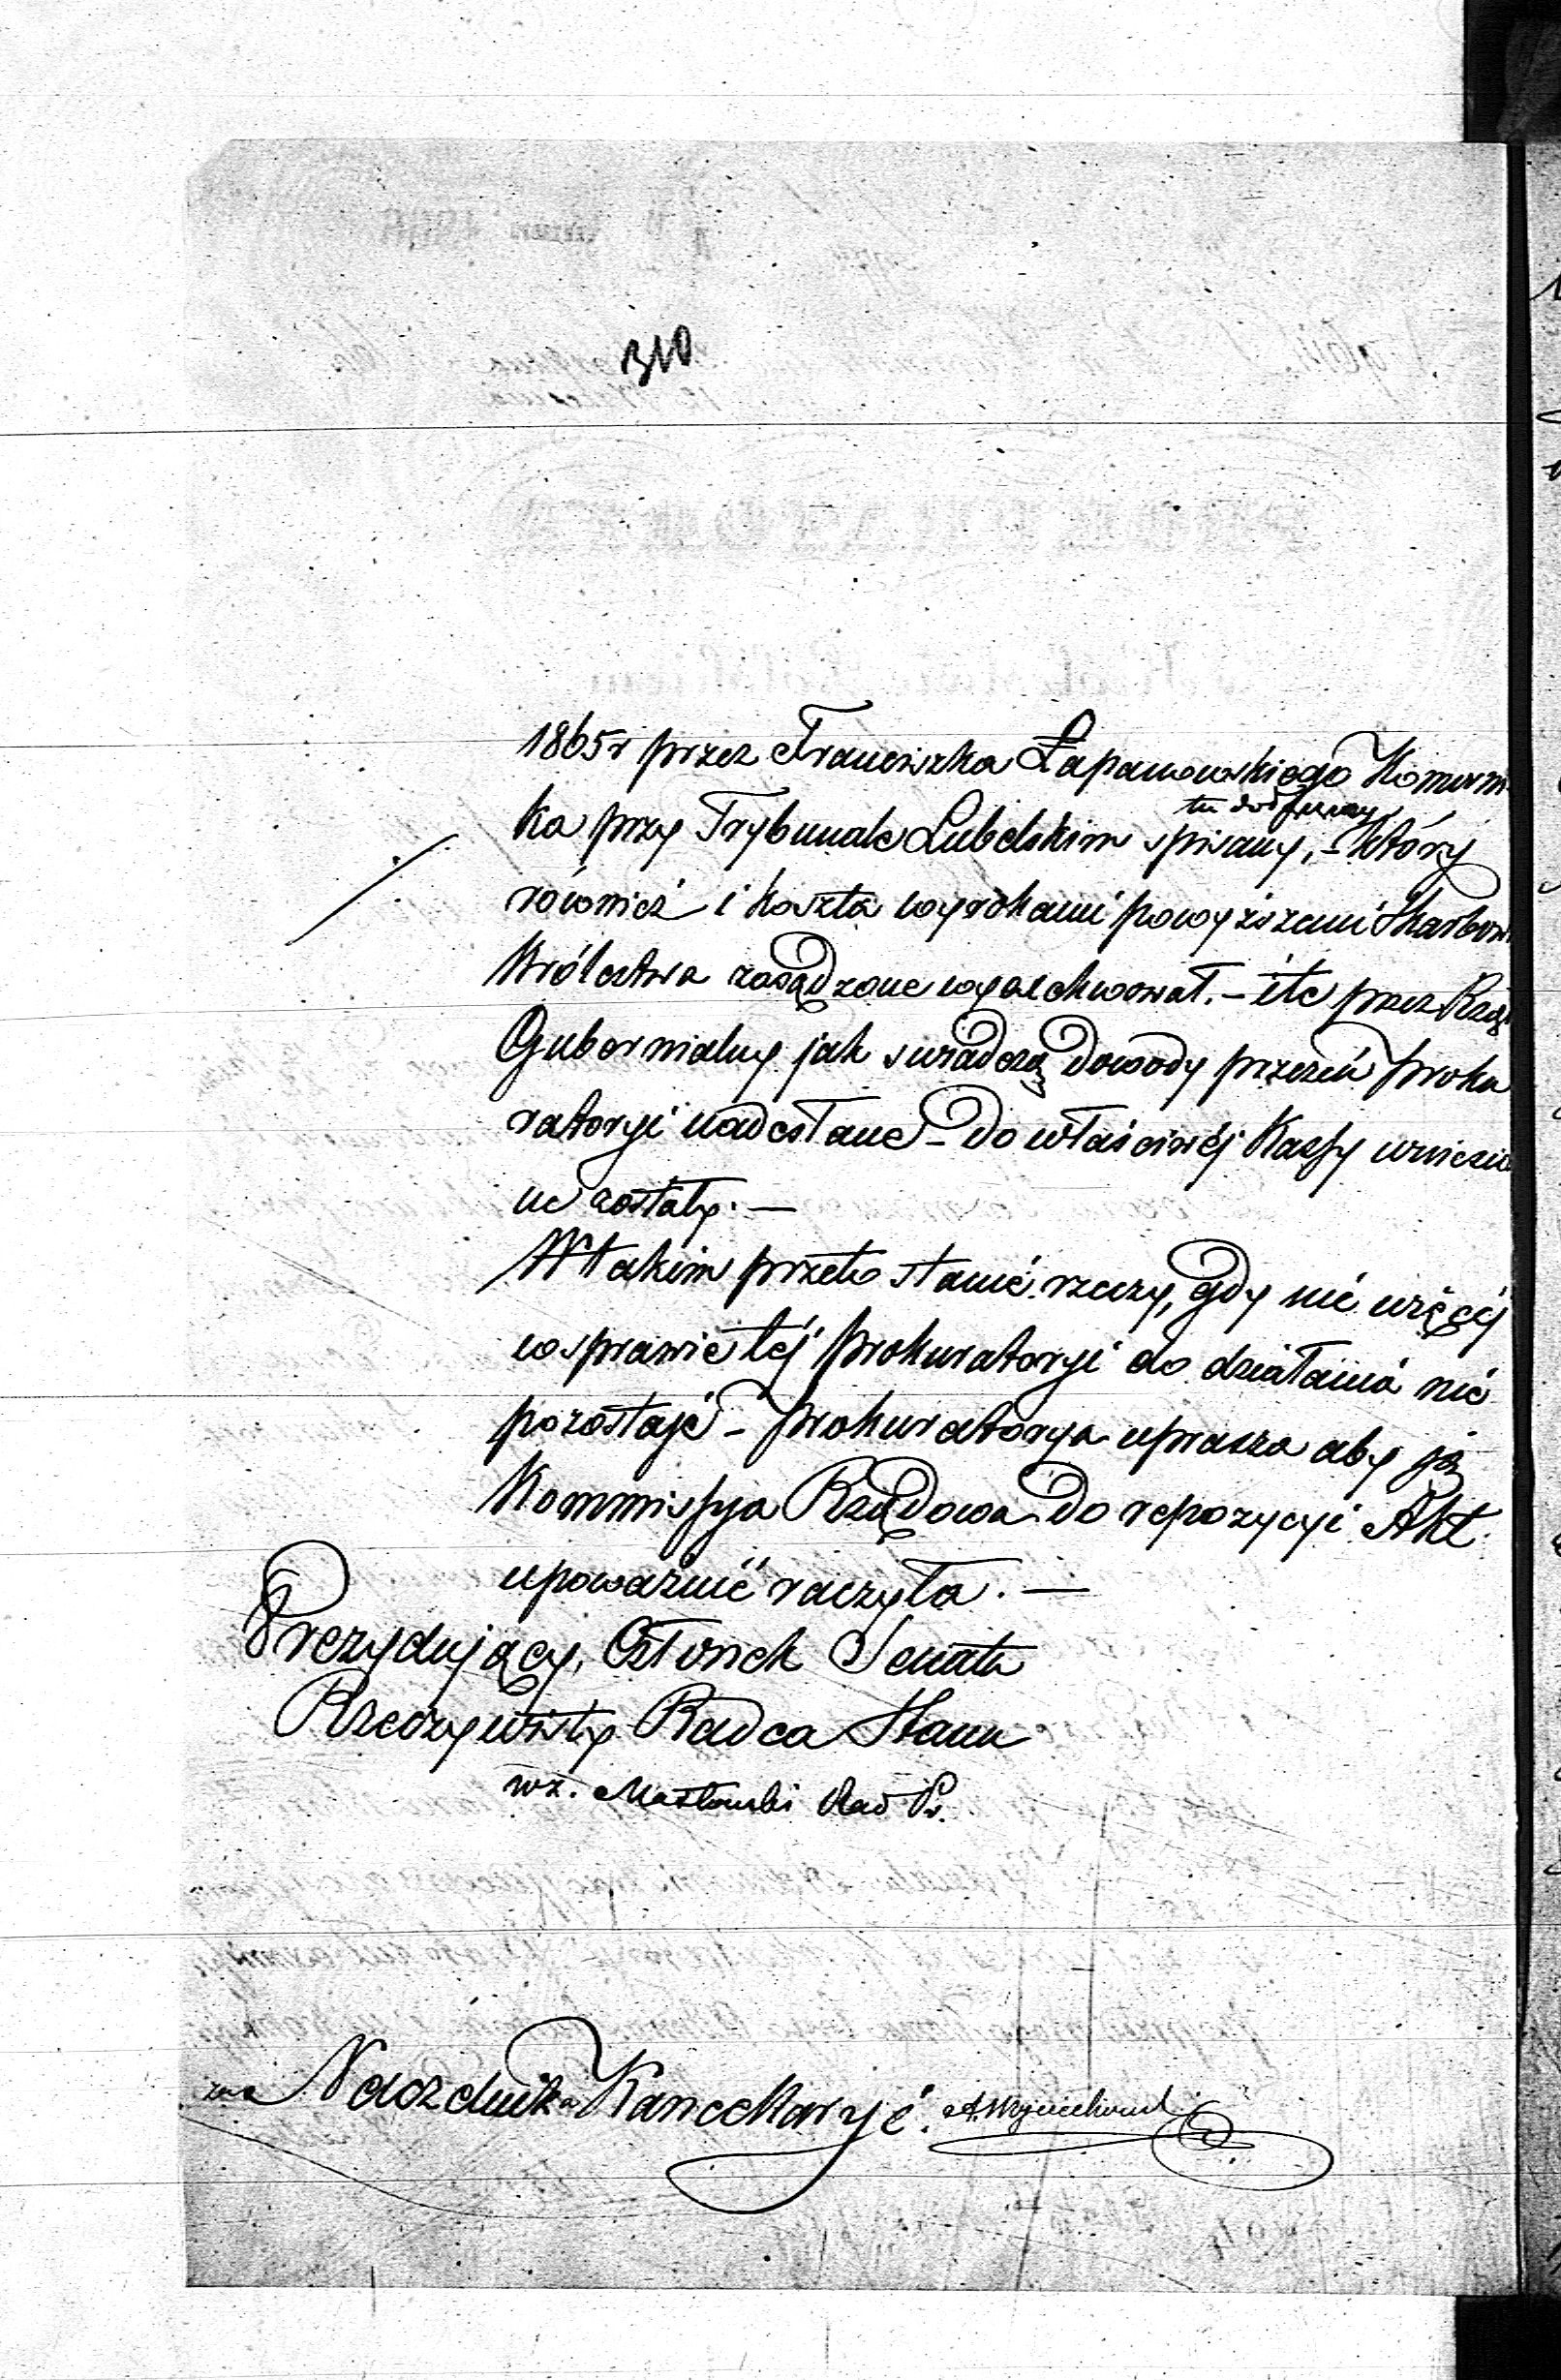 310
1865 r przez Franciszka Łapanowskiego Komorni
ka przy Trybunale Lubelskim spisany, – który
tu dołączony
również i koszta wyrokami powyższemi Skarbowi
Królestwa zasądzone wyexekwował. – ite przez Rząd
Gubernialny jak świadczą dowody przezeń proku
ratoryi nadesłane – do właściwéj Kassy wniesio
ne zostały. —
W takim przeto stanie rzeczy, gdy nic więcéj
w sprawie téj prokuratoryi do działania nie
pozostaje – prokuratorya uprasza aby ją
Kommissya Rządowa do repozycyi Akt
upoważnić raczyła. —
Prezydujący, Członek Senatu
Rzeczywisty Radca Stanu
wz. Masłowski Rad P.
za Naczelnika Kancellaryi. A. Wojciechowski